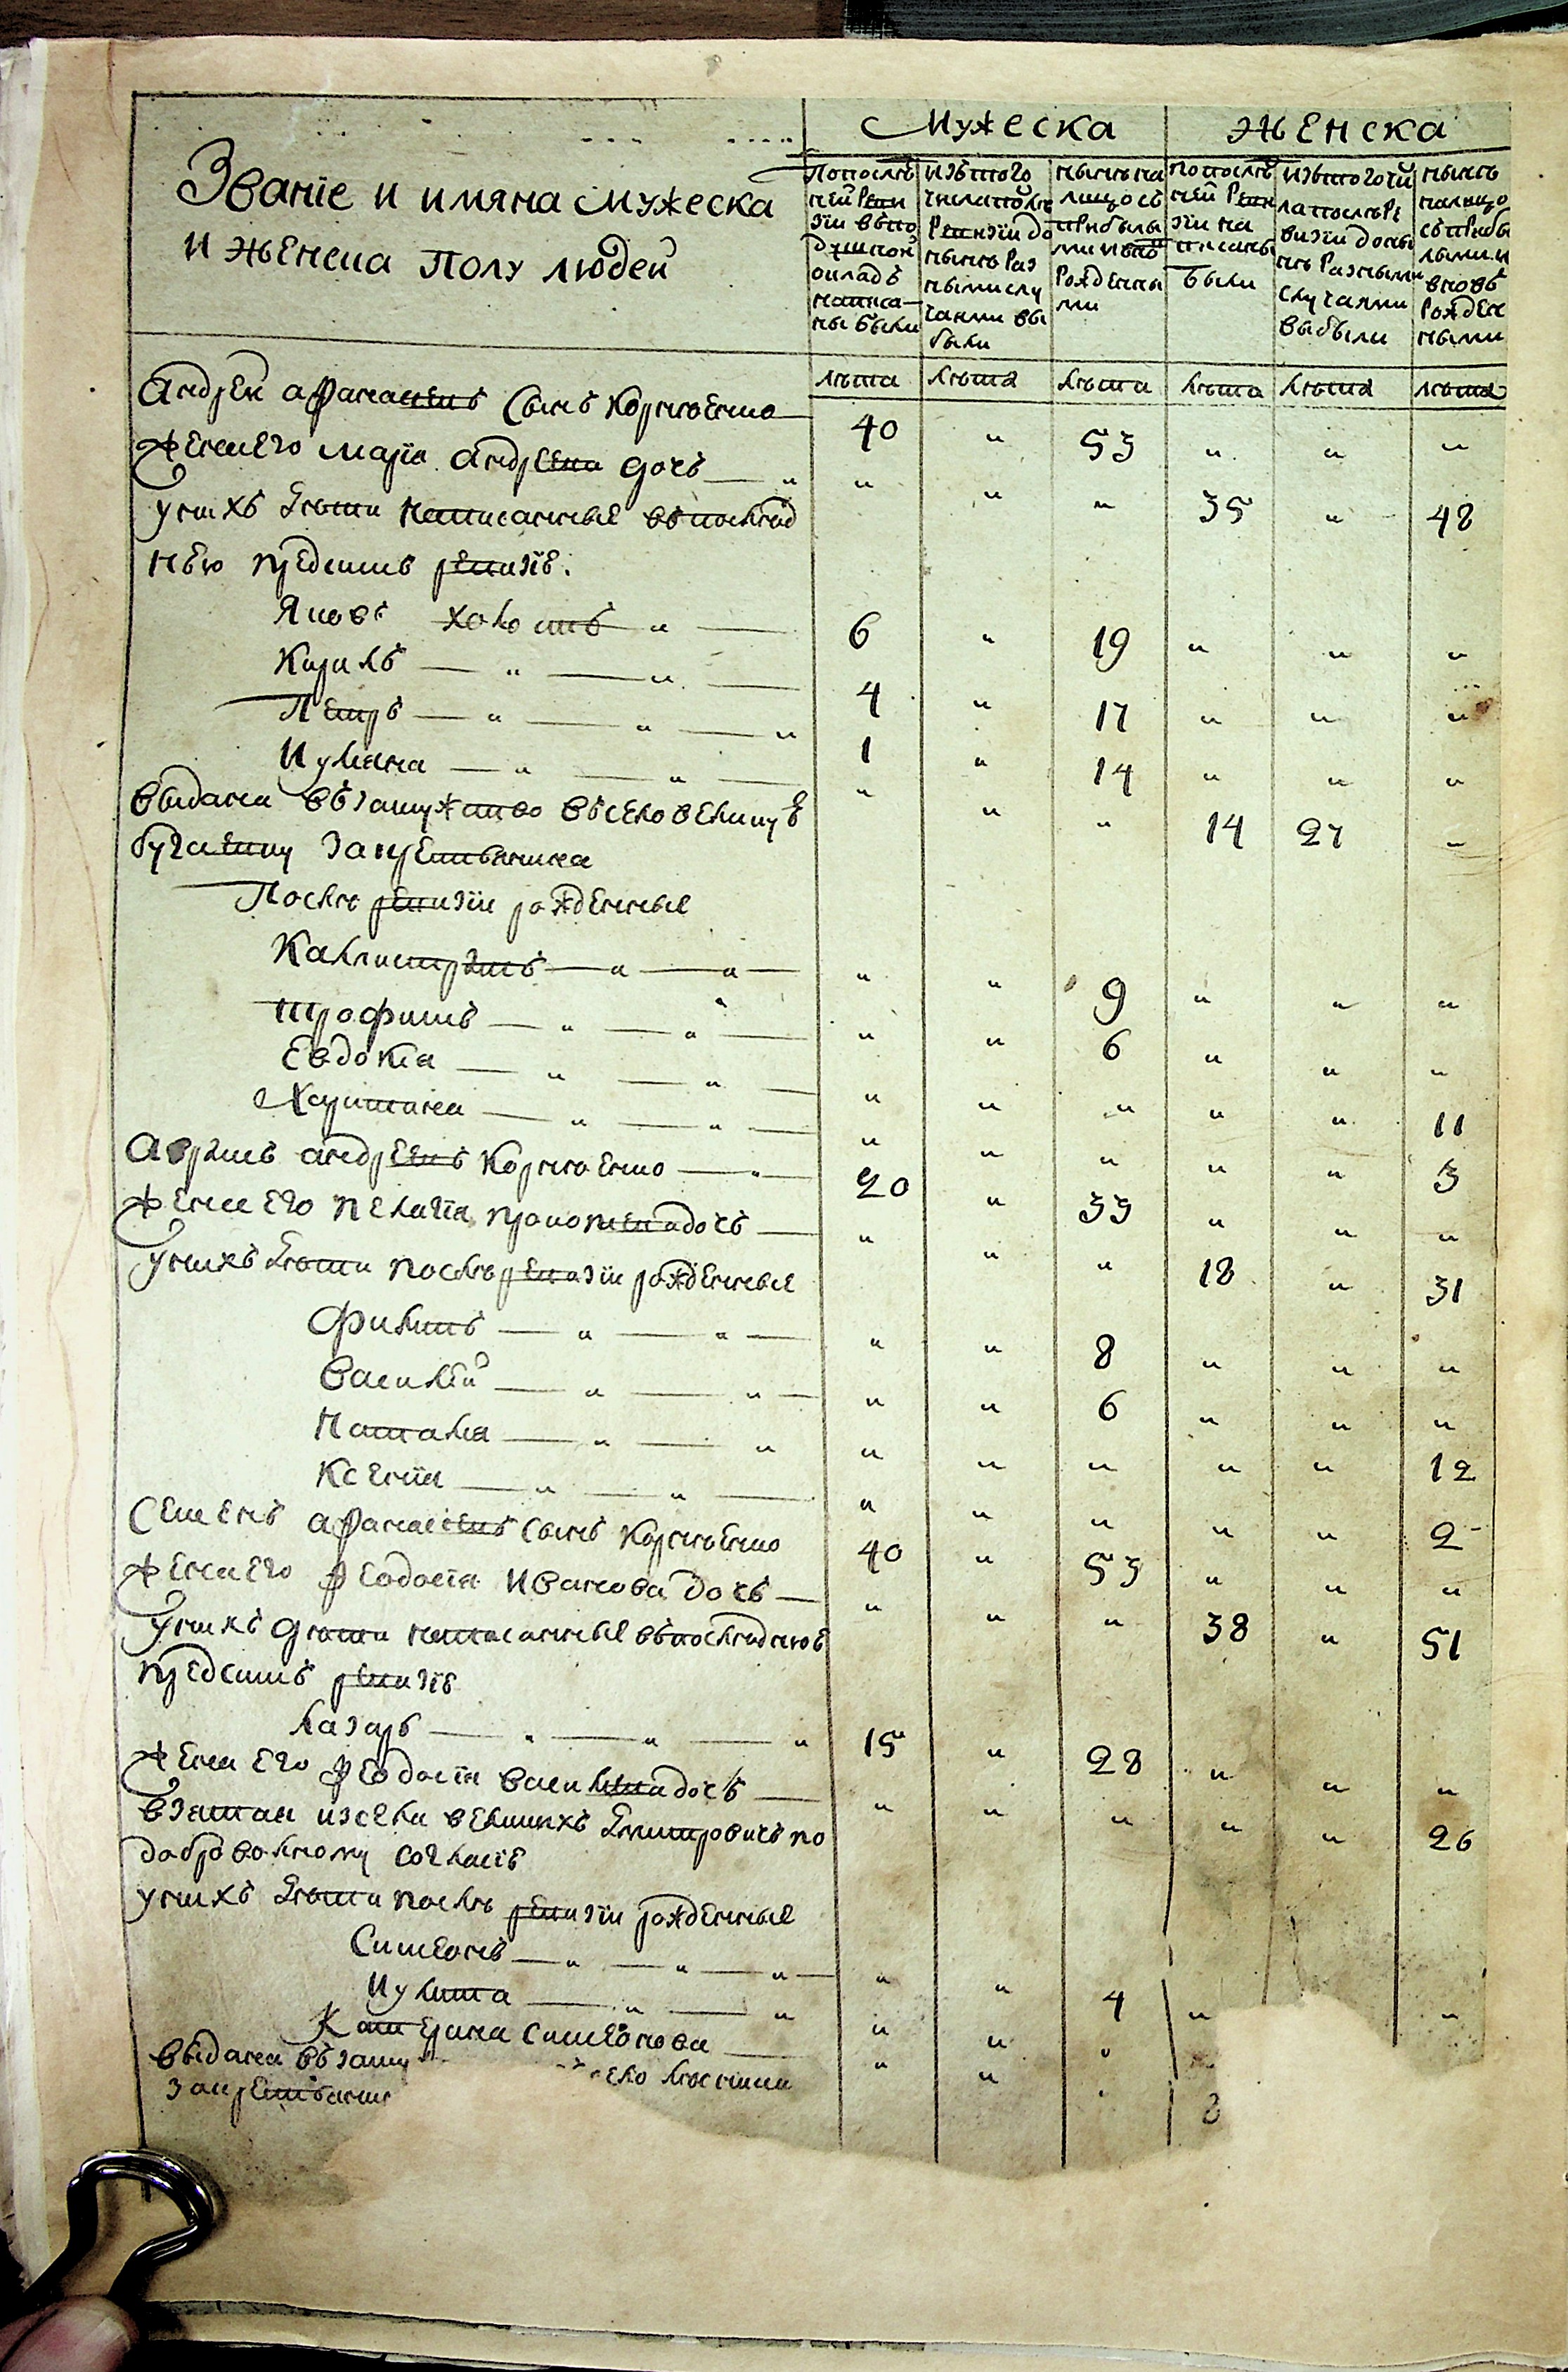 Мужеска Женска
Званіе и имяна мужеска
и женска полу людей
По послѣдней ревизіи въ подушной окладъ написаны были
Изъ того числа после ревизіи до нынѣ разными случаями выбыли
Нынѣ на лицо съ прибылыми и вновь рожденными
По послѣдней ревизіи написаны были
Изъ того числа послѣ ревизіи до нынѣ разными случаями выбыли
Нынѣ на лицо съ прибылыми и вновь рожденными
лѣта лѣта лѣта лѣта лѣта лѣта
Андрей Афанасевъ сынъ Корнѣенко 40 „ 53 „ „ „
Жена его Марія Андреева дочь „ „ „ 35 „ 48
у нихъ дѣти написанные въ послѣд
нею предсимъ ревизіе.
Яковъ холостъ 6 „ 19 „ „ „
Кирилъ 4 „ 17 „ „ „
Петръ 1 „ 14 „ „ „
Иуляна „ „ „ 14 27 „
выдана въ замужство въ село
за крестьянина
После ревизіи рожденные
Калистратъ „ „ 9 „ „ „
Трофимъ „ „ 6 „ „ „
Евдокіа „ „ „ „ „ 11
Харитина „ „ „ „ „ 3
Аврамъ Андреевъ Корнѣенко 20 „ 33 „ „ „
Жена его Пелагіа Прокопиева дочь „ „ „ 18 „ 31
у нихъ дѣти послѣ ревизіи рожденные
Филипъ „ „ 8 „ „ „
Василій „ „ 6 „ „ „
Наталия „ „ „ „ „ 12
Ксеніа „ „ „ „ „ 2
Семенъ Афанасіевъ сынъ Корнѣенко 40 „ 53 „ „ „
Жена его Феодосіа Иванова дочь „ „ „ 38 „ 51
у нихъ дѣти написанные въ послѣднюе
предсимъ ревизіе
Лазарь 15 „ 28 „ „ „
Жена его Феодосіа Василиева дочь „ „ „ „ „ 26
взятая изсела Великихъ по
доброволному согласіе
у нихъ дѣти послѣ ревизіи рожденные
Симеонъ „ „ 4 „ „
Иулита „ „ „
Катерина Симеонова „ „ „ 8
выдана въ заму село
за крестьянин